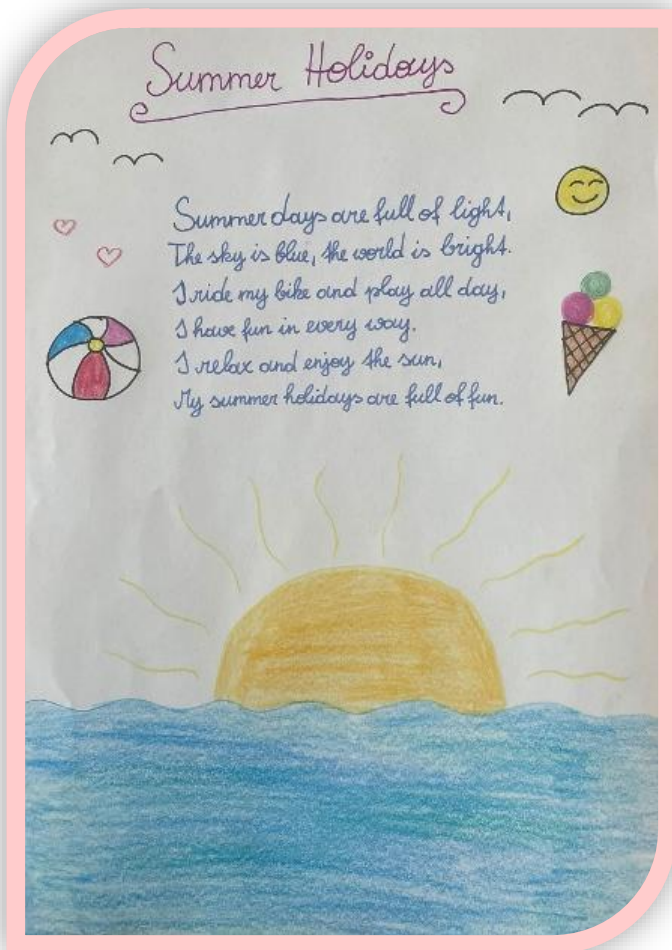 Summer Holidays
Summer days are full of light,
The sky is blue, the world is bright.
I ride my bike and play all day,
I have fun in every way.
I relax and enjoy the sun,
My summer holidays are full of fun.